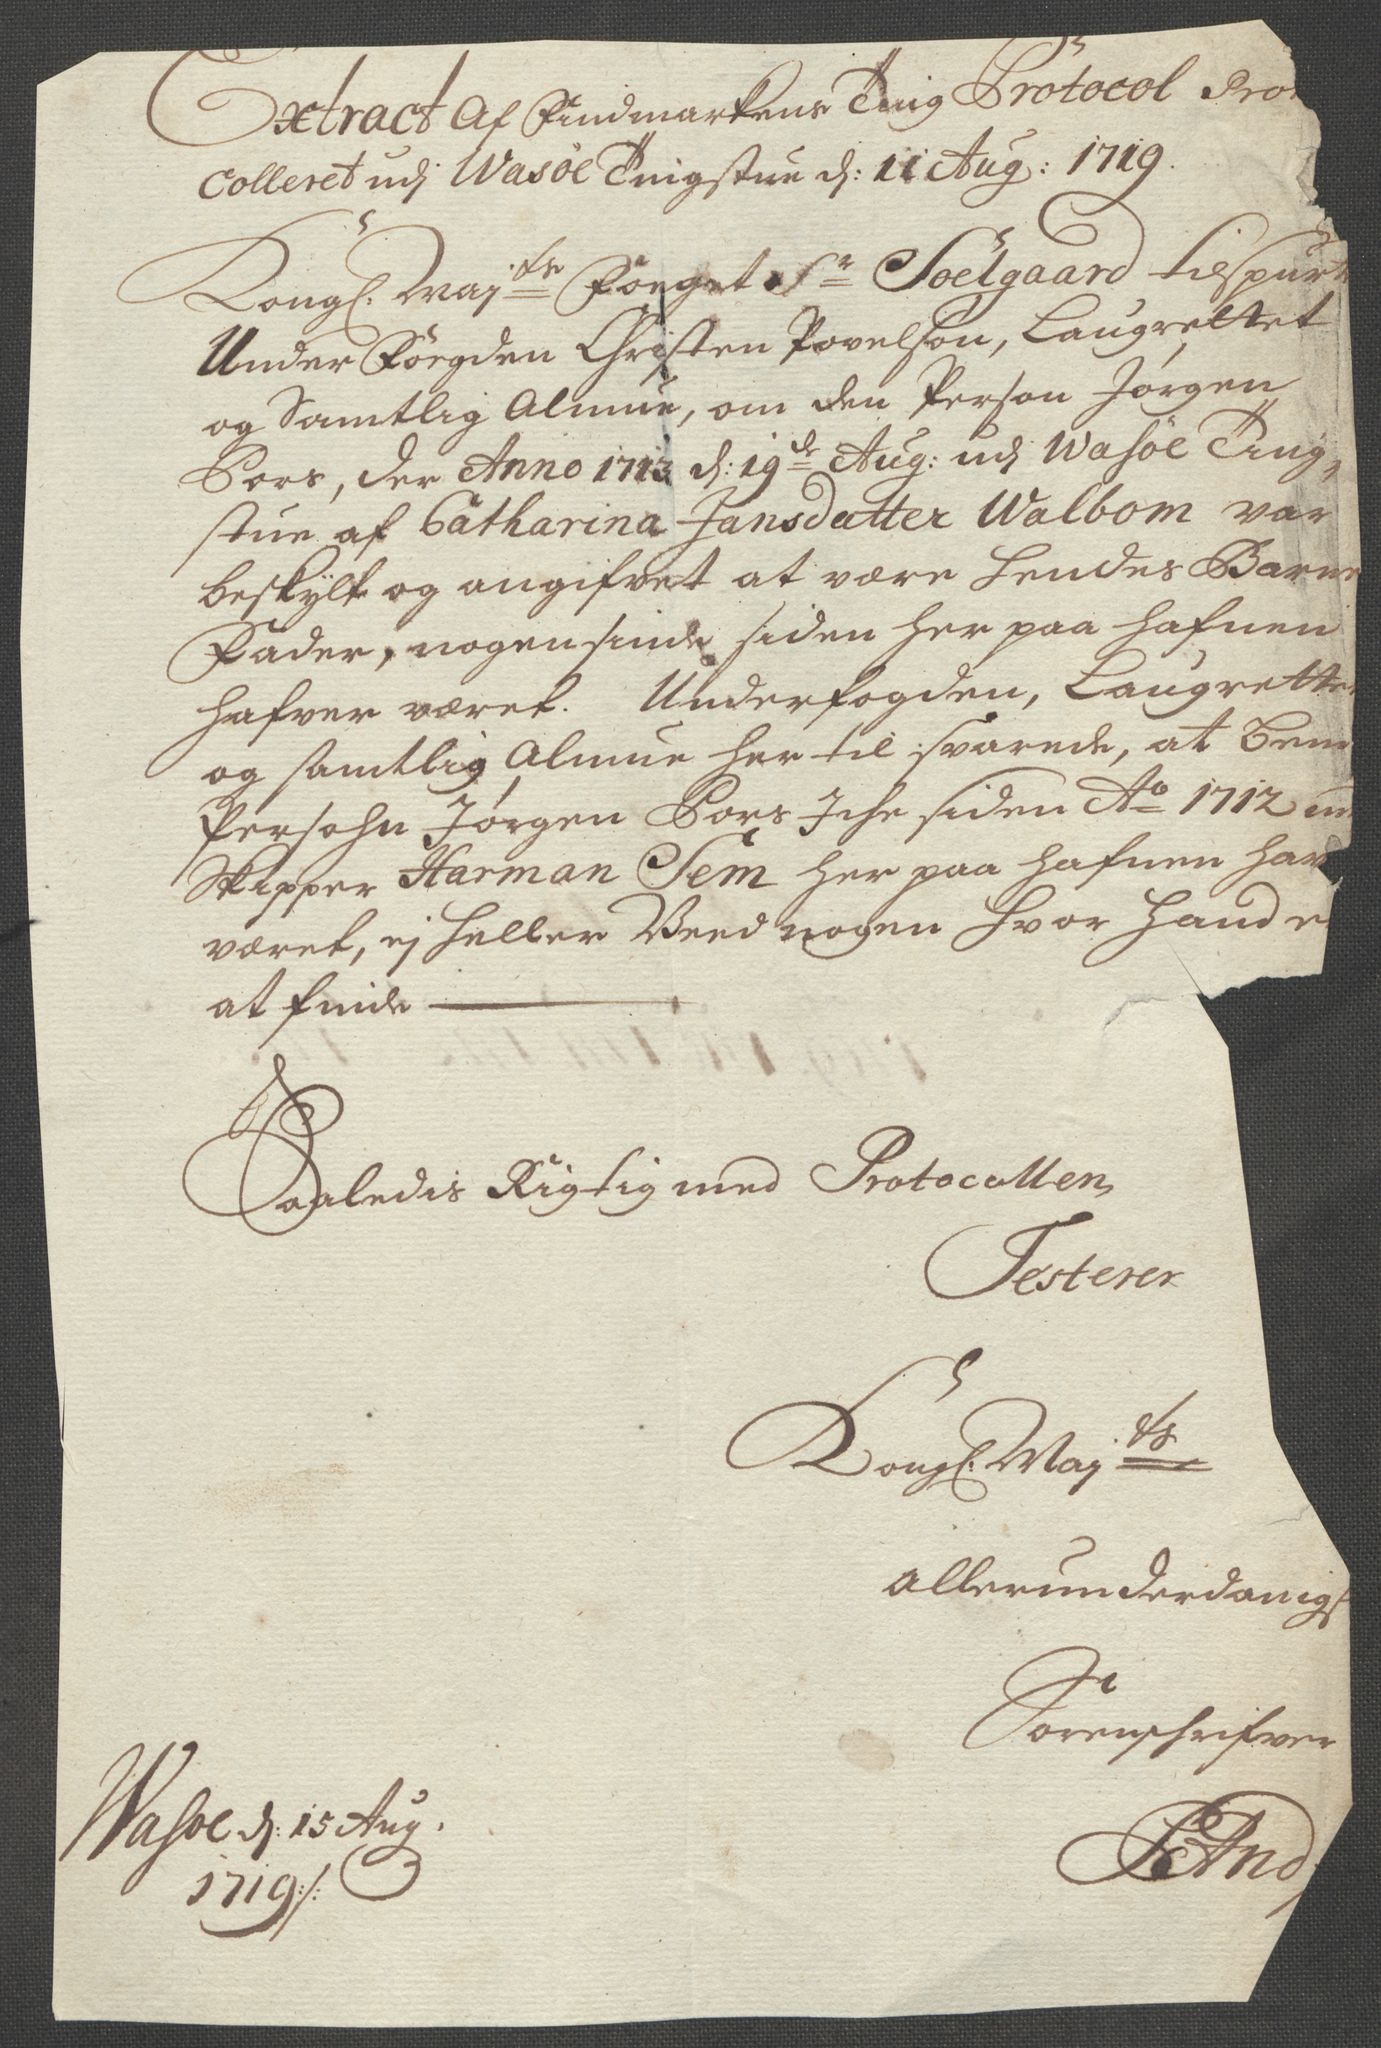 Extract Af Findmarkens Ting Protocol Pro
colleret udj Wasöe Tingstue d: 11 Aug: 1719.
Kongl. Maj:ts Foeget Sr Soelgaard tilspurte
Under Foegden Christen Povelsøn, Laugrettet
og Samtlig Almue, om den Person Jørgen
Pors, der Anno 1713 d: 19de Aug: udj Wasöe Ting,
stue af Catharina Jansdatter Walbom var
beskylt og angifvet at være hendes Barne
Fader, nogensinde siden her paa hafnen
hafver været. Underfogden, Laugrettet
og samtlig Almue her til svarede, at bem
Persohn Jørgen Pors Iche siden Ao 1712 m
Skipper Harman Sem her paa hafnen har
været, ej heller Veed nogen hvor hand e
at finde
Saaledis Rigtig med Protocollen,
Testerer
Kongl. Maj:ts
allerunderdanigs
Sorenschrifver
And
Wasöe d: 15 Aug.
1719:/: